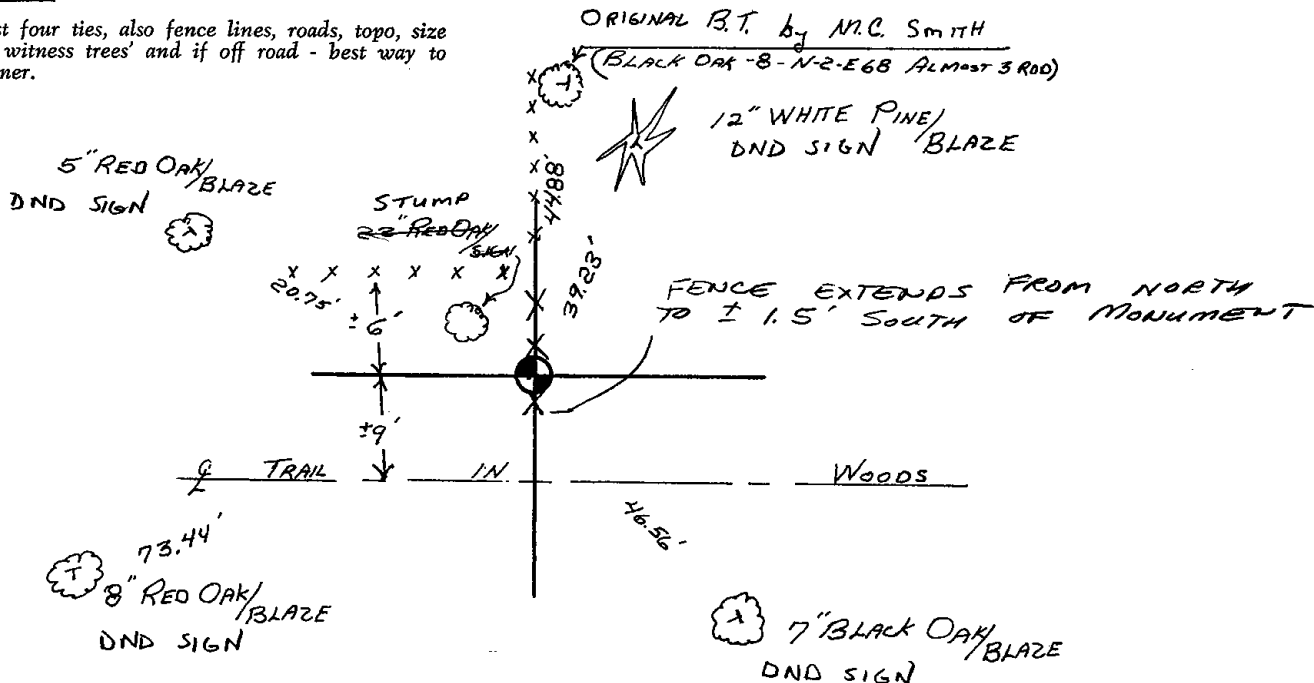 st four ties, also fence lines, roads, topo, size
witness trees' and if off road - best way to
ner.
ORIGINAL B.T. by N.C. SMITH
(BLACK OAK -8-N-2-E68 ALMOST 3 ROD)
12" WHITE PINE/
DND SIGN BLAZE
5" RED OAK/
BLAZE
DND SIGN
STUMP
22" RED OAK/
SIGN
44.88'
39.23'
20.75'
±6'
FENCE EXTENDS FROM NORTH
TO ± 1.5' SOUTH OF MONUMENT
±9'
℄ TRAIL IN WOODS
73.44'
8" RED OAK/
BLAZE
DND SIGN
46.56'
7" BLACK OAK/
BLAZE
DND SIGN